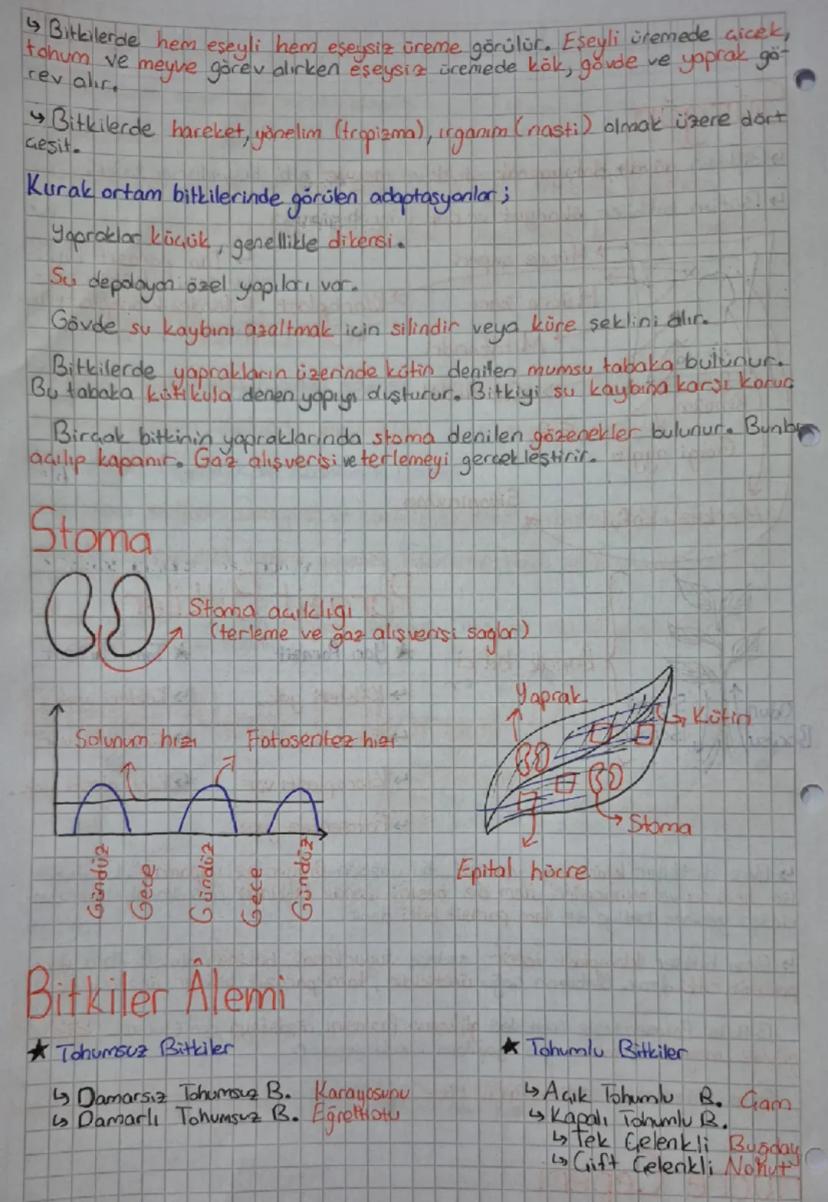 ↳ Bitkilerde hem eşeyli hem eşeysiz üreme görülür. Eşeyli üremede çiçek,
tohum ve meyve görev alırken eşeysiz üremede kök, gövde ve yaprak gö-
rev alır.
↳ Bitkilerde hareket, yönelim (tropizma), ırganım (nasti) olmak üzere dört
çeşit.
Kurak ortam bitkilerinde görülen adaptasyonlar;
Yapraklar küçük, genellikle dikensi.
Su depolayan özel yapıları var.
Gövde su kaybını azaltmak için silindir veya küre şeklini alır.
Bitkilerde yaprakların üzerinde kütin denilen mumsu tabaka bulunur.
Bu tabaka kütikula denen yapıyı oluşturur. Bitkiyi su kaybına karşı korur
Birçok bitkinin yapraklarında stoma denilen gözenekler bulunur. Bunlar
açılıp kapanır. Gaz alışverişi ve terlemeyi gerçekleştirir.
Stoma
Stoma açıklığı
(terleme ve gaz alışverişi sağlar)
Solunum hızı
Fotosentez hızı
Gündüz
Gece
Gündüz
Gece
Gündüz
Yaprak
Kütin
Stoma
Epital hücre
Bitkiler Âlemi
★ Tohumsuz Bitkiler
↳ Damarsız Tohumsuz B. Karayosunu
↳ Damarlı Tohumsuz B. Eğreltiotu
★ Tohumlu Bitkiler
↳ Açık Tohumlu B. Çam
↳ Kapalı Tohumlu B.
↳ Tek Çelenkli Buğday
↳ Çift Çelenkli Nohut